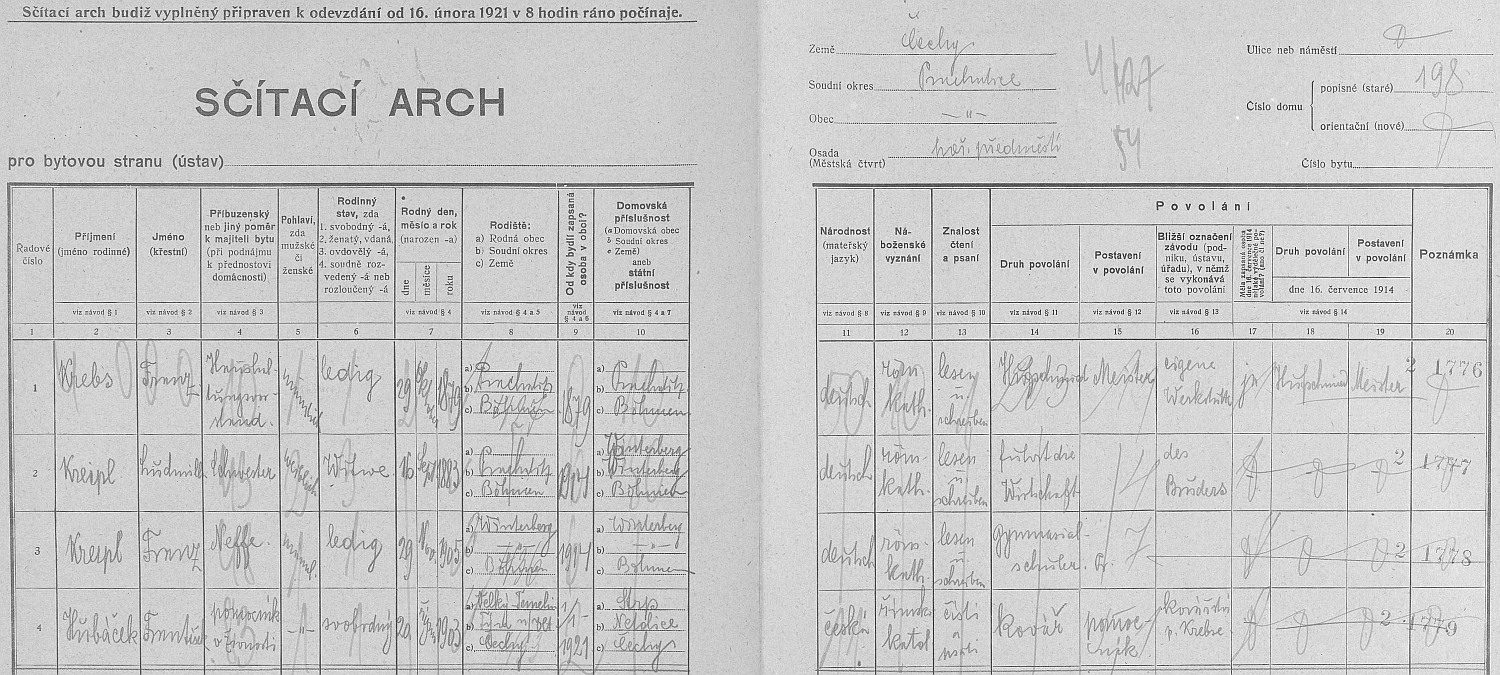 Sčítací arch budiž vyplněný připraven k odevzdání od 16. února 1921 v 8 hodin ráno počínaje.
SČÍTACÍ ARCH
pro bytovou stranu (ústav)
Řadové číslo
Příjmení
(jméno rodinné)
Jméno
(křestní)
Příbuzenský
neb jiný poměr
k majiteli bytu
(při podnájmu
k přednostovi
domácnosti)
Pohlaví,
zda
mužské
či
ženské
Rodinný
stav, zda
1. svobodný -á,
2. ženatý, vdaná,
3. ovdovělý -á,
4. soudně roz-
vedený -á neb
rozloučený -á
Rodný den,
měsíc a rok
(narozen -a)
dne
měsíce
roku
Rodiště:
a) Rodná obec
b) Soudní okres
c) Země
Od kdy bydlí zapsaná
osoba v obci?
Domovská
příslušnost
(a Domovská obec
b Soudní okres
c Země)
aneb
státní
příslušnost
viz návod § 1
viz návod § 2
viz návod § 3
viz návod § 4
viz návod § 4 a 5
viz
návod
§ 4 a 6
viz návod § 4 a 7
1 2 3 4 5 6 7 8 9 10
1
Krebs
Franz
Haushal-
tungsvor-
stand.
männlich
ledig
29
1879
a)
b) Prachatitz
c) Böhmen
1879
a)
b) Prachatitz
c) Böhmen
2
Kreipl
Ludmilla
Schwester
weiblich
Witwe
16
Sept
1883
a)
b) Prachatitz
c) Böhmen
a) Winterberg
b) Winterberg
c) Böhmen
3
Kreipl
Franz
Neffe.
männl.
ledig
29
Nov.
1905
a) Winterberg
b) -"-
c) Böhmen
a) Winterberg
b) -"-
c) Böhmen
4
Hrbáček
František
pomocník
v živnosti
-"-
svobodný
1903
a) Velký Temelín
b) Týn n/Vlt
c) Čechy
1/1
1921
a) Strp
b) Netolice
c) Čechy
Země Čechy
Soudní okres Prachatice
Obec -"-
Osada
(Městská čtvrť) hoř. předměstí
4/127
54
Ulice neb náměstí
Číslo domu
popisné (staré) 198
orientační (nové)
Číslo bytu
Národnost
(mateřský
jazyk)
Ná-
boženské
vyznání
Znalost
čtení
a psaní
Povolání
Druh povolání
Postavení
v povolání
Bližší označení
závodu (pod-
niku, ústavu,
úřadu), v němž
se vykonává
toto povolání
Měla zapsaná osoba
dne 16. července 1914
nějaké výdělečné po-
volání? (ano či ne?)
Druh povolání
Postavení
v povolání
dne 16. července 1914
Poznámka
viz návod § 8
viz návod § 9
viz návod § 10
viz návod § 11
viz návod § 12
viz návod § 13
viz návod § 14
11 12 13 14 15 16 17 18 19 20
deutsch
röm.
kath.
lesen
u
schreiben
Hufschmied
Meister
eigene
Werkstätte
ja
Hufschmied
Meister
2
1776
deutsch
röm-
kath.
lesen
u
schreiben
führt die
Wirtschaft
des
Bruders
2
1777
deutsch
röm-
kath.
lesen
u
schreiben
Gymnasial-
schüler.
2
1778
česká
římsk
katol
čísti
psáti
kovář
pomoc-
ník
kovářství
p. Krebse
2
1779